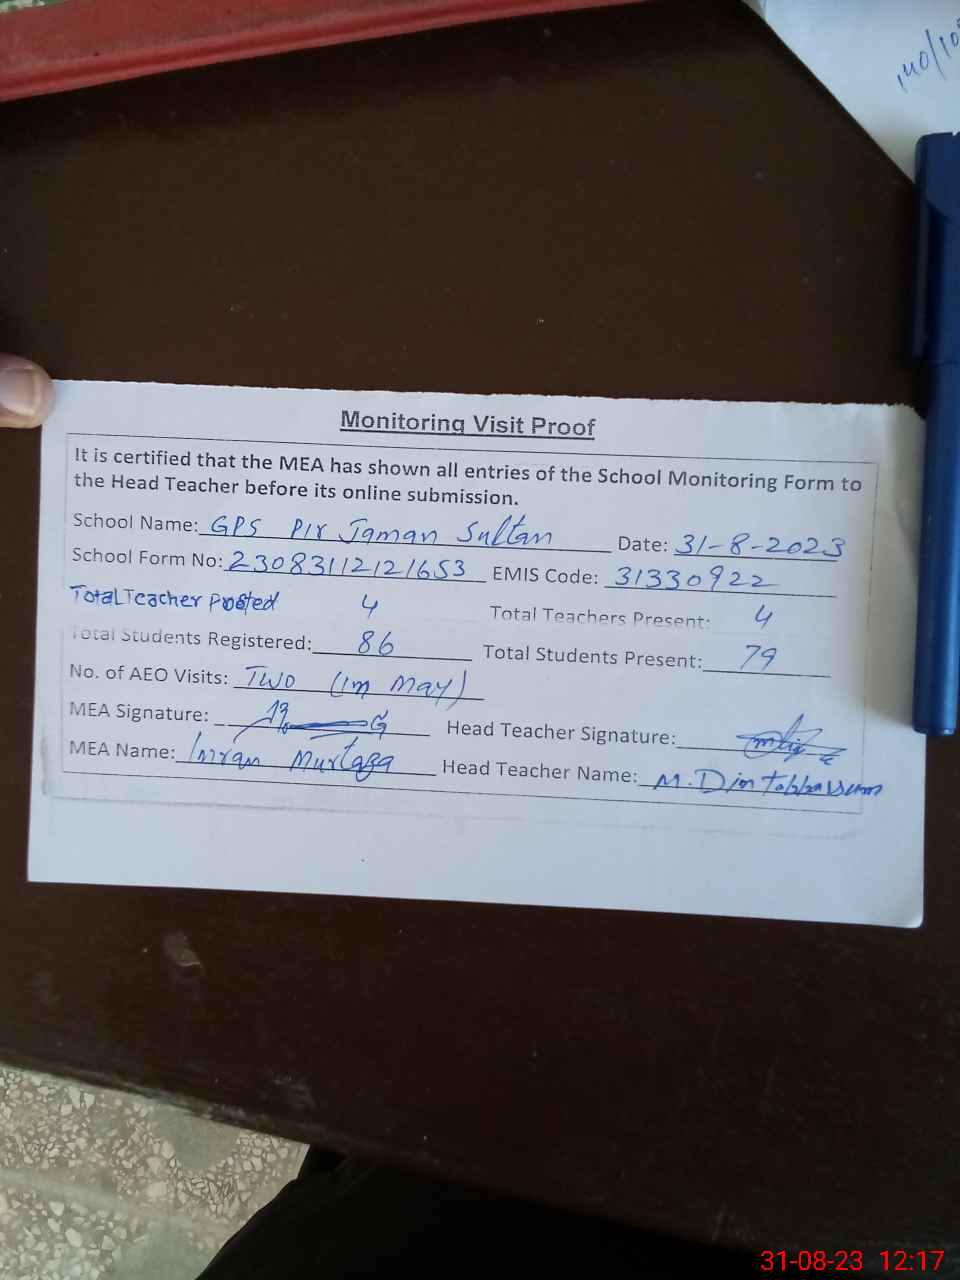 140/10
Monitoring Visit Proof
It is certified that the MEA has shown all entries of the School Monitoring Form to
the Head Teacher before its online submission.
School Name: GPS Pir Jaman Sultan Date: 31-8-2023
School Form No: 23083112121653 EMIS Code: 31330922
Total Teacher Posted 4 Total Teachers Present: 4
Total Students Registered: 86 Total Students Present: 79
No. of AEO Visits: Two (im May)
MEA Signature: Head Teacher Signature:
MEA Name: Imran Murtaza Head Teacher Name: M. Din tabbassum
31-08-23 12:17